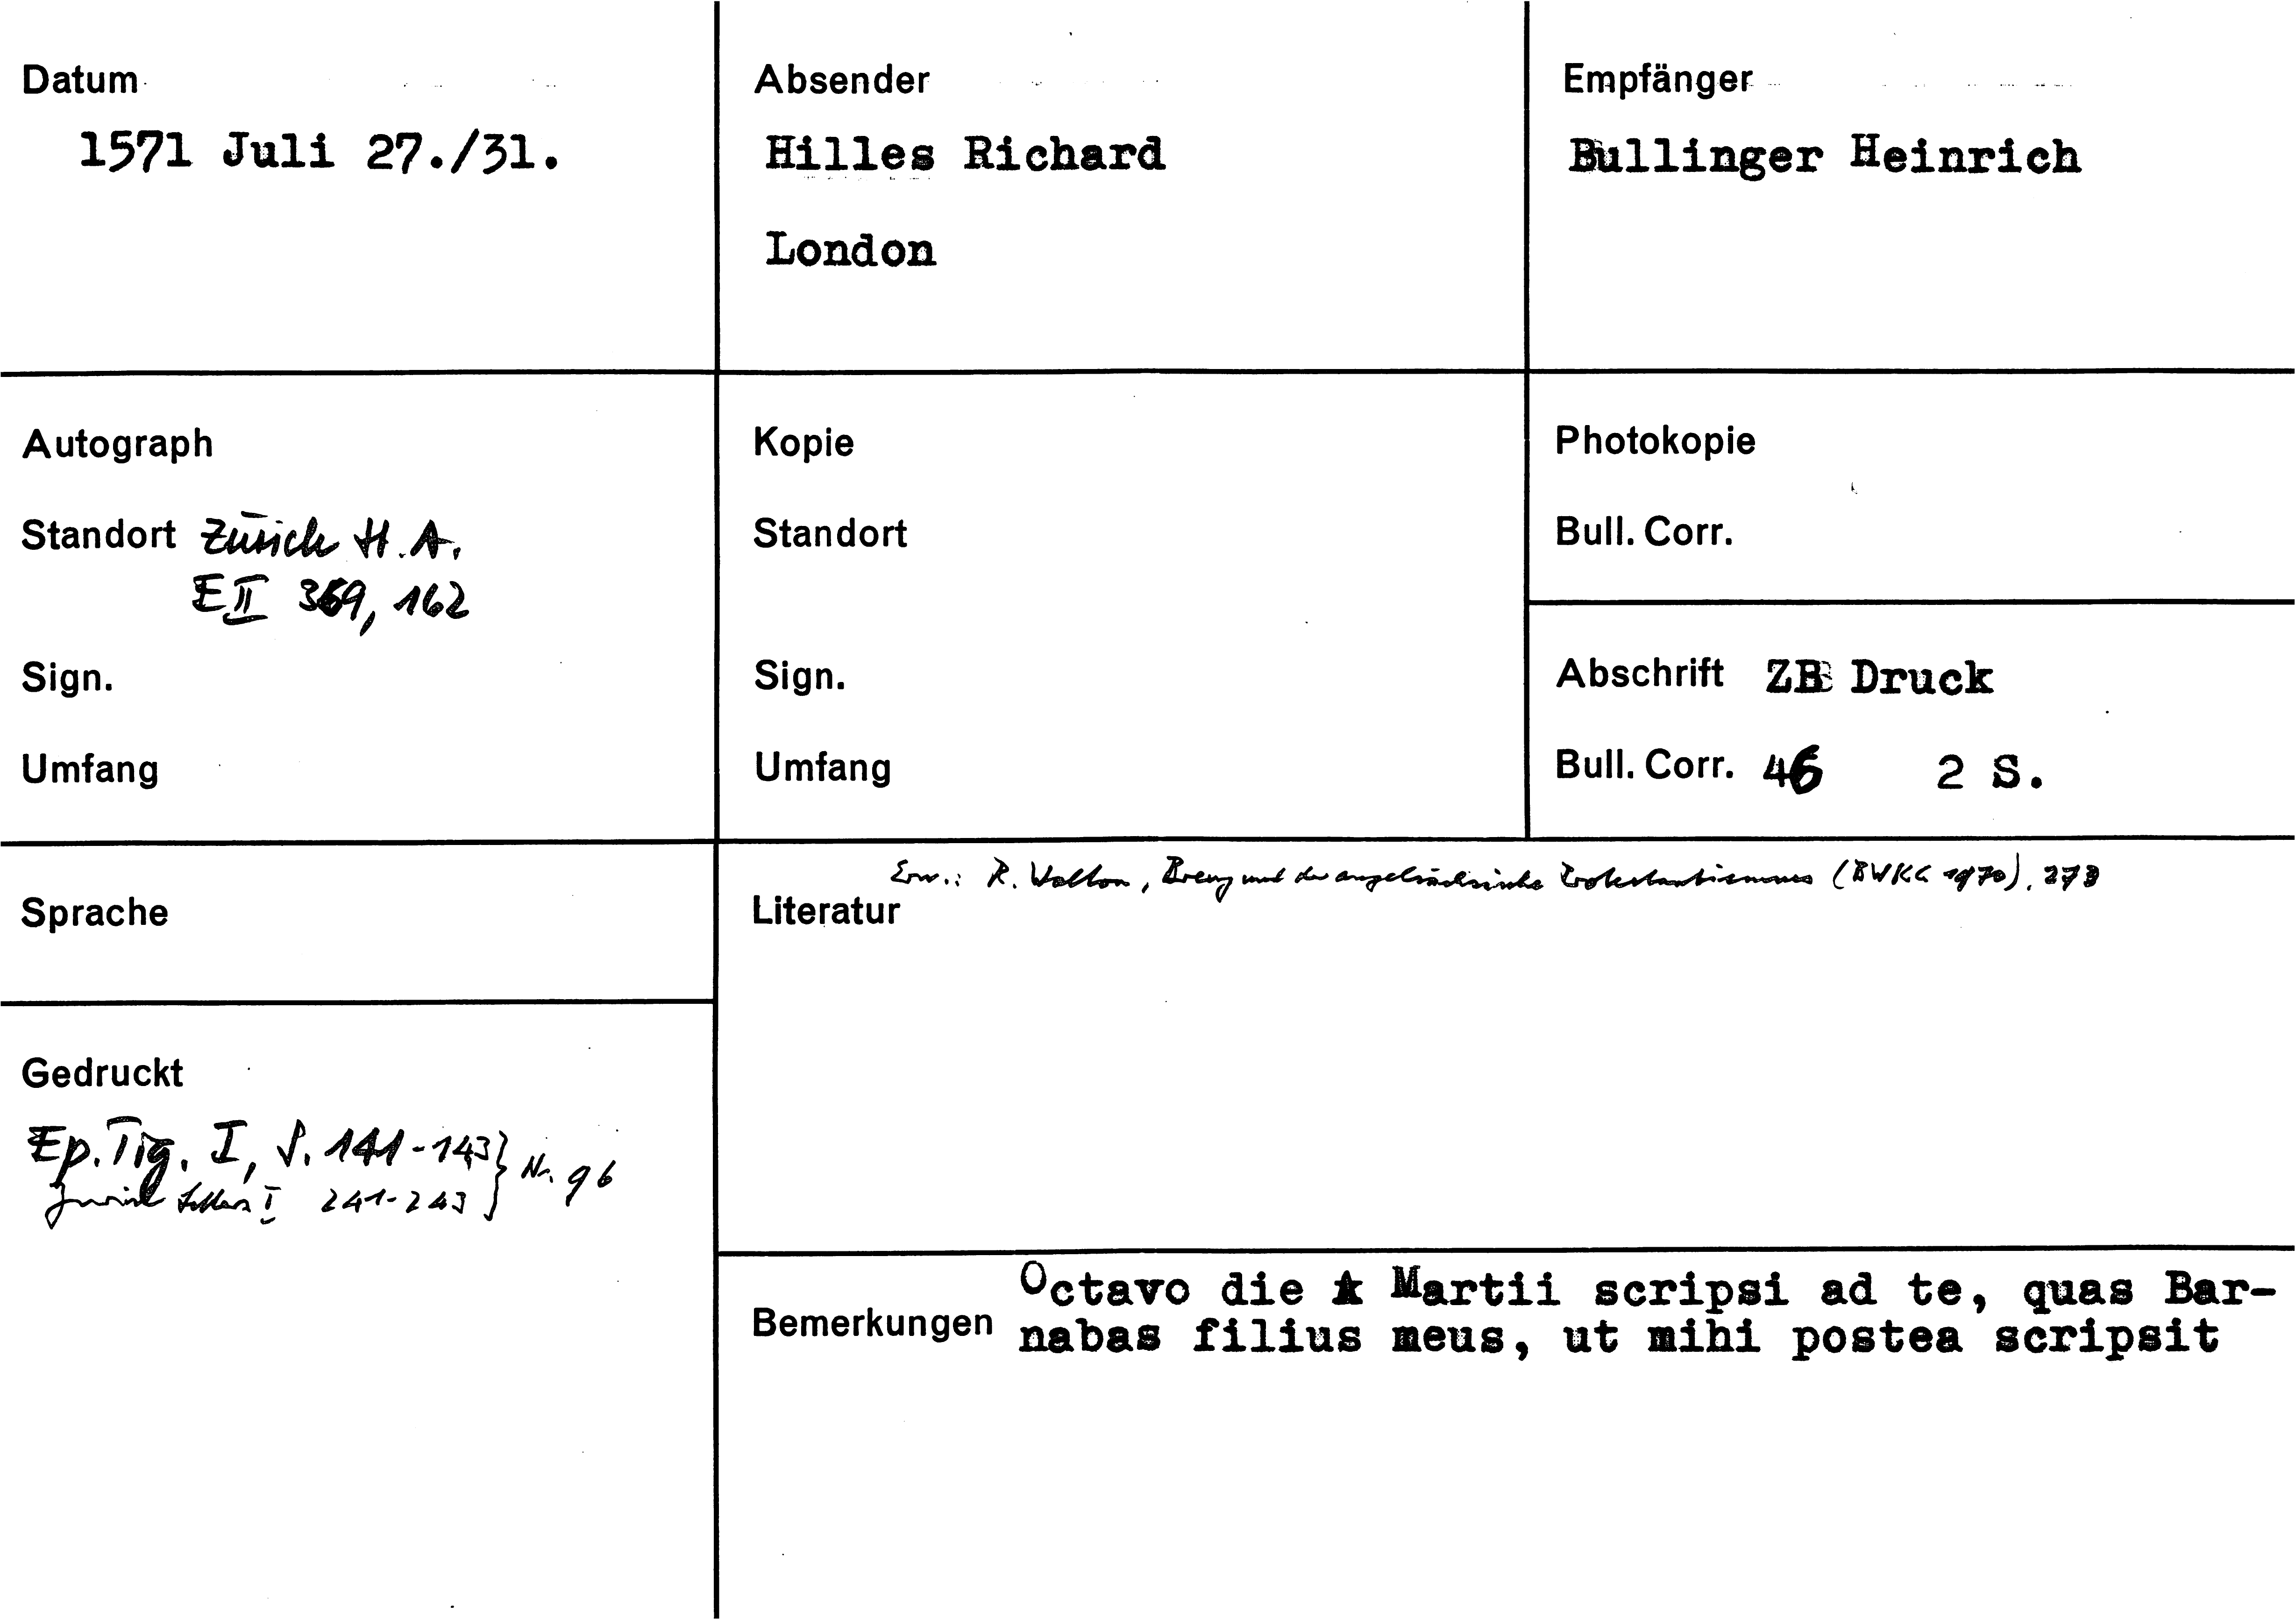 Datum
1571 Juli 27./31.
Absender
Hilles Richard
London
Empfänger
Bullinger Heinrich
Autograph
Standort Zürich H.A.
E II 369, 162
Sign.
Umfang
Kopie
Standort
Sign.
Umfang
Photokopie
Bull. Corr.
Abschrift ZB Druck
Bull. Corr. 46 2 S.
Sprache
Gedruckt
Ep. Tig. I, S. 141-143 } Nr. 96
Zurich Letters I 241-243
Erw.: R. Walton, Brenz und der angelsächsische Protestantismus (BWKG 1970), 273
Literatur
Bemerkungen
Octavo die Martii scripsi ad te, quas Bar-
nabas filius meus, ut mihi postea scripsit